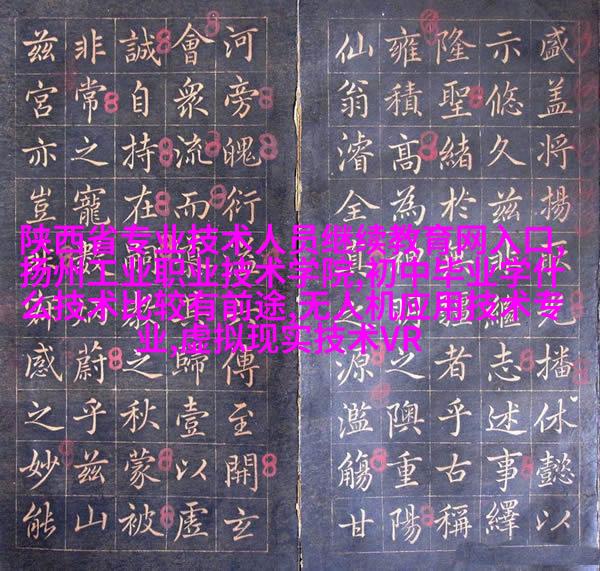 陕西省专业技术人员继续教育网入口,
扬州工业职业技术学院,初中毕业学什
么技术比较有前途,无人机应用技术专
业,虚拟现实技术VR
盛蓋將揚光播休懿以
示悠久茲繼志述事繹
隆聖緒於無疆者乎古稱
雍積高為神明之隩重陽
仙翁濬全真源濫觴甘
河旁魄衍傳至開玄
會衆流而歸壹以虛
誠自持在嗣之秋蒙被
非常之寵蔚乎茲山
茲宮亦豈感之妙能